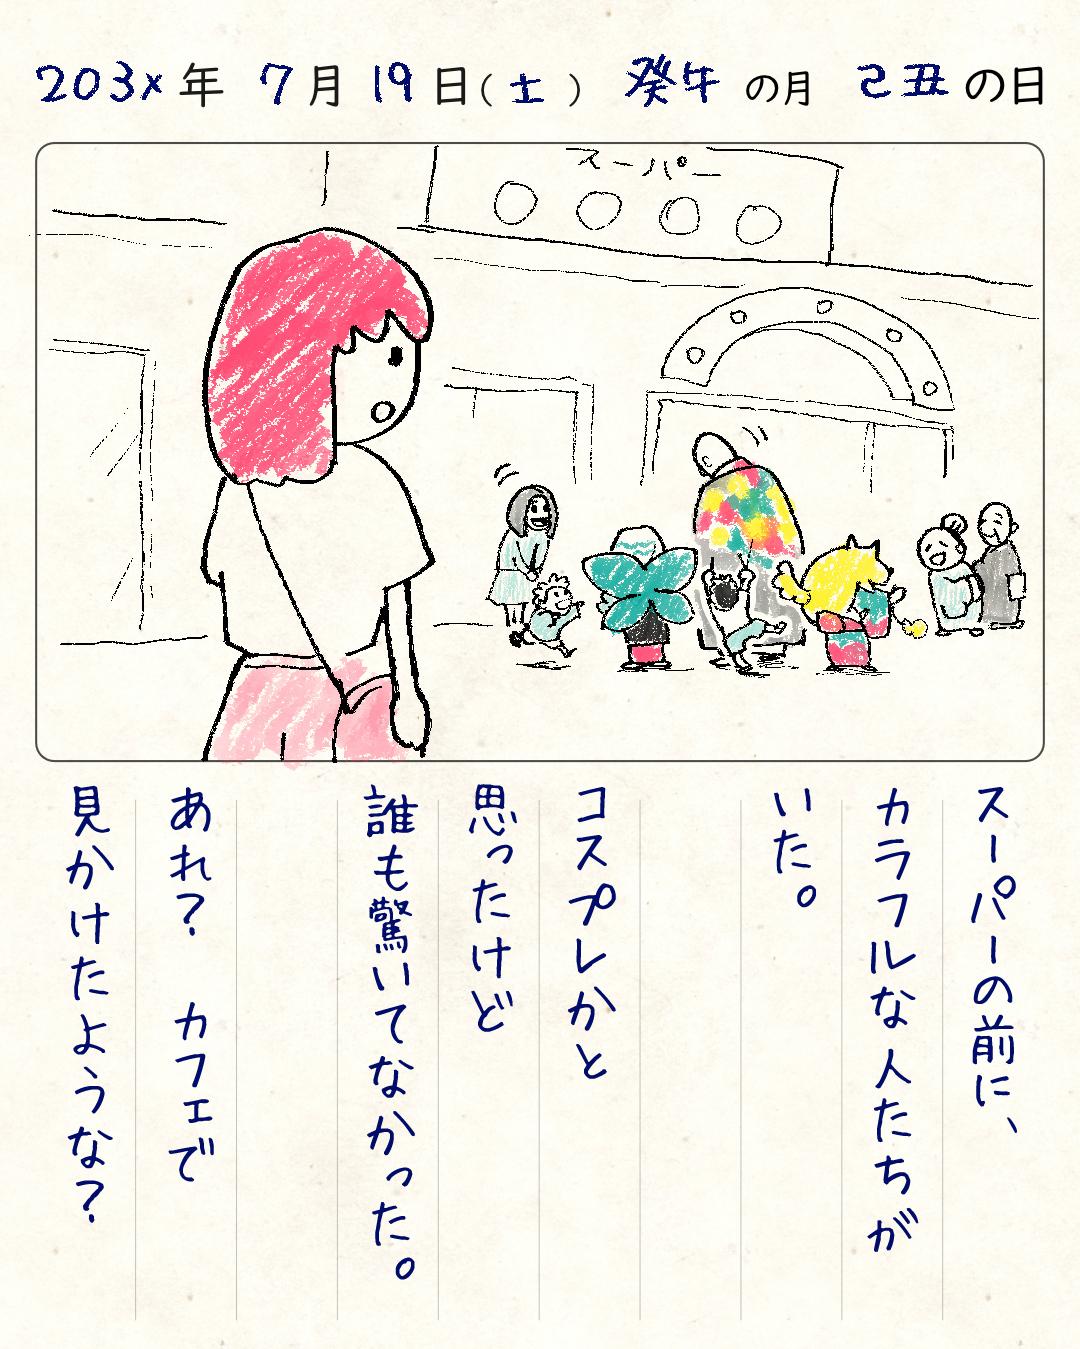 203x年 7月19日(土) 癸午の月 己丑の日
スーパー
スーパーの前に、
カラフルな人たちが
いた。
コスプレかと
思ったけど
誰も驚いてなかった。
あれ? カフェで
見かけたような?